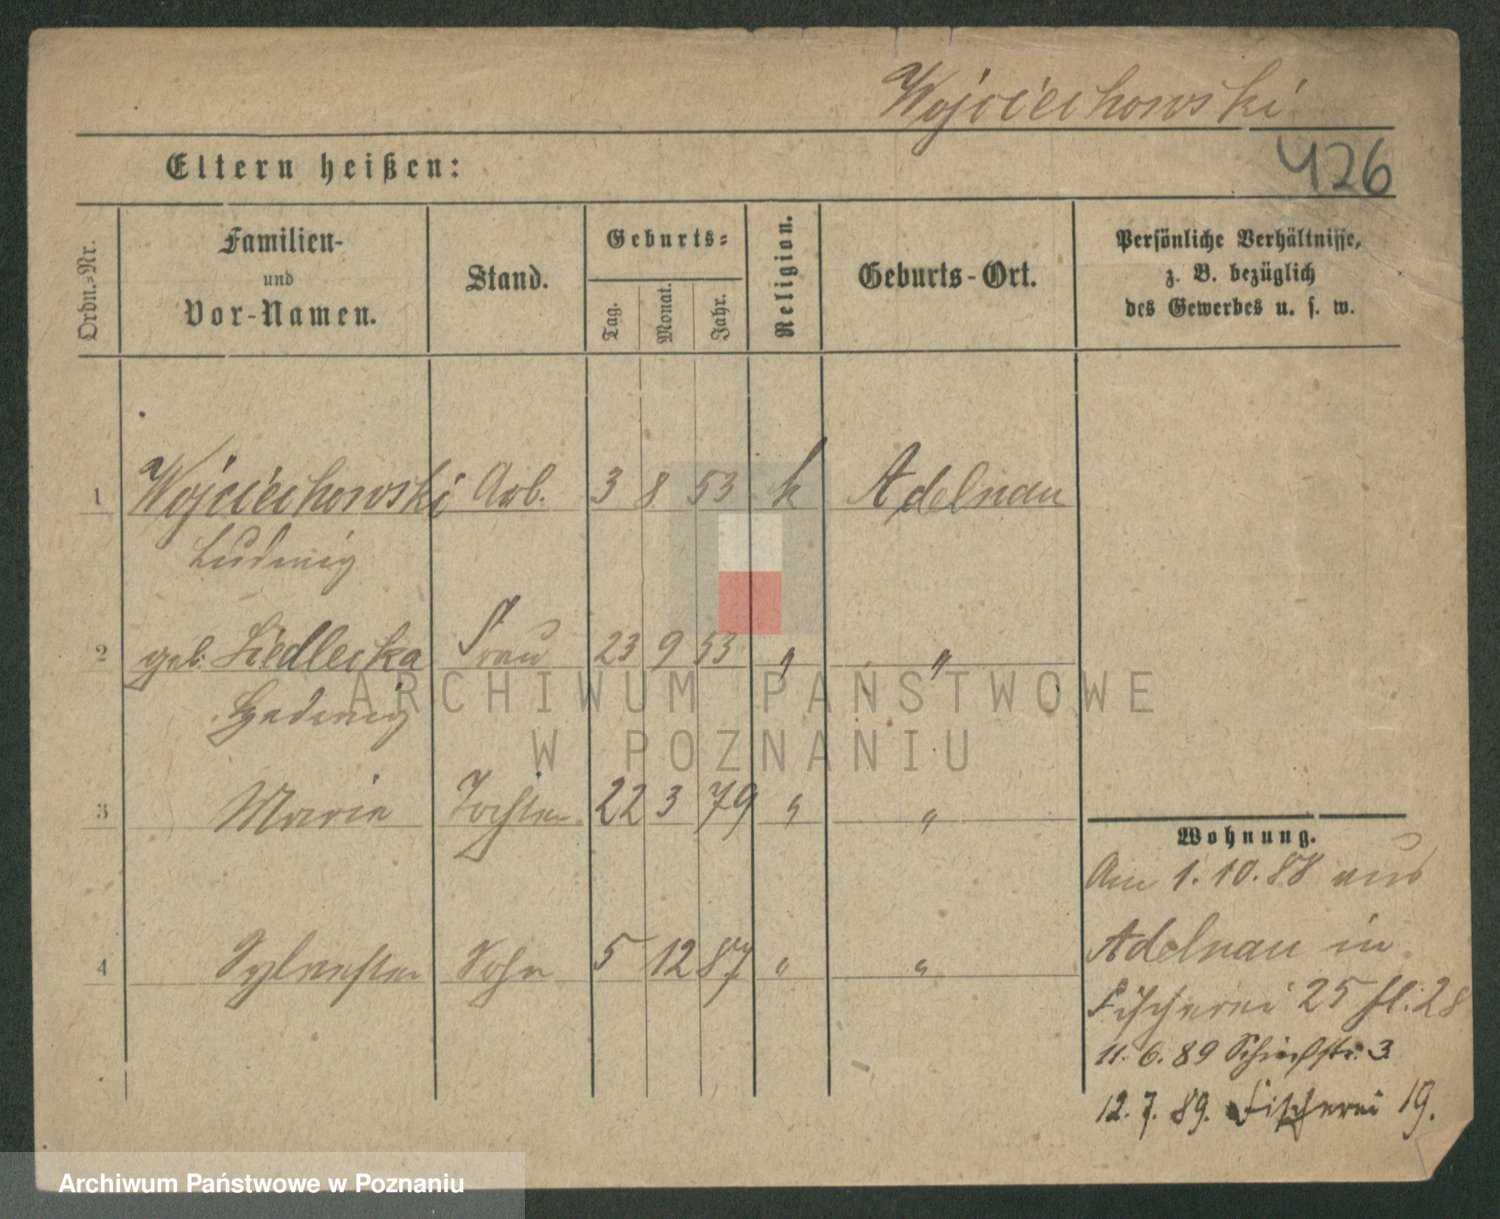 Wojciechowski
426
Eltern heißen:
Ordn.-Nr.
Familien-
und
Vor-Namen.
Stand.
Geburts-
Tag.
Monat.
Jahr.
Religion.
Geburts-Ort.
Persönliche Verhältnisse,
z. B. bezüglich
des Gewerbes u. s. w.
1 Wojciechowski Arb. 3 8 53 k Adelnau
Ludwig
2 geb. Siedlecka Frau 23 9 53 " "
Hedwig
3 Marie Tochter 22 3 79 " "
4 Sylvester Sohn 5 12 87 " "
Wohnung.
Am 1.10.88 aus
Adelnau in
Fischerei 25 bl: 28
11.6.89 Schießstr. 3
12.7.89. Fischerei 19.
ARCHIWUM PAŃSTWOWE
W POZNANIU
Archiwum Państwowe w Poznaniu